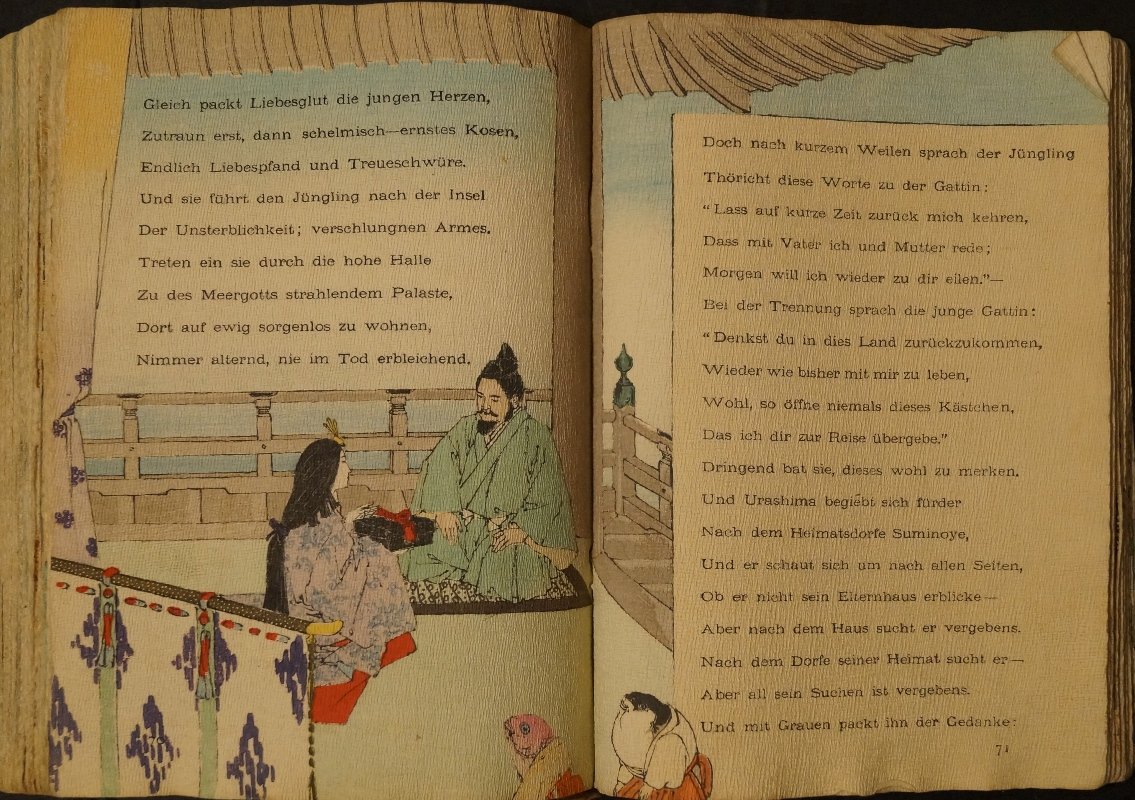 Gleich packt Liebesglut die jungen Herzen,
Zutraun erst, dann schelmisch—ernstes Kosen,
Endlich Liebespfand und Treueschwüre.
Und sie führt den Jüngling nach der Insel
Der Unsterblichkeit; verschlungnen Armes.
Treten ein sie durch die hohe Halle
Zu des Meergotts strahlendem Palaste,
Dort auf ewig sorgenlos zu wohnen,
Nimmer alternd, nie im Tod erbleichend.
Doch nach kurzem Weilen sprach der Jüngling
Thöricht diese Worte zu der Gattin:
“Lass auf kurze Zeit zurück mich kehren,
Dass mit Vater ich und Mutter rede;
Morgen will ich wieder zu dir eilen.”—
Bei der Trennung sprach die junge Gattin:
“Denkst du in dies Land zurückzukommen,
Wieder wie bisher mit mir zu leben,
Wohl, so öffne niemals dieses Kästchen,
Das ich dir zur Reise übergebe.”
Dringend bat sie, dieses wohl zu merken.
Und Urashima begiebt sich fürder
Nach dem Heimatsdorfe Suminoye,
Und er schaut sich um nach allen Seiten,
Ob er nicht sein Elternhaus erblicke—
Aber nach dem Haus sucht er vergebens.
Nach dem Dorfe seiner Heimat sucht er—
Aber all sein Suchen ist vergebens.
Und mit Grauen packt ihn der Gedanke:
71